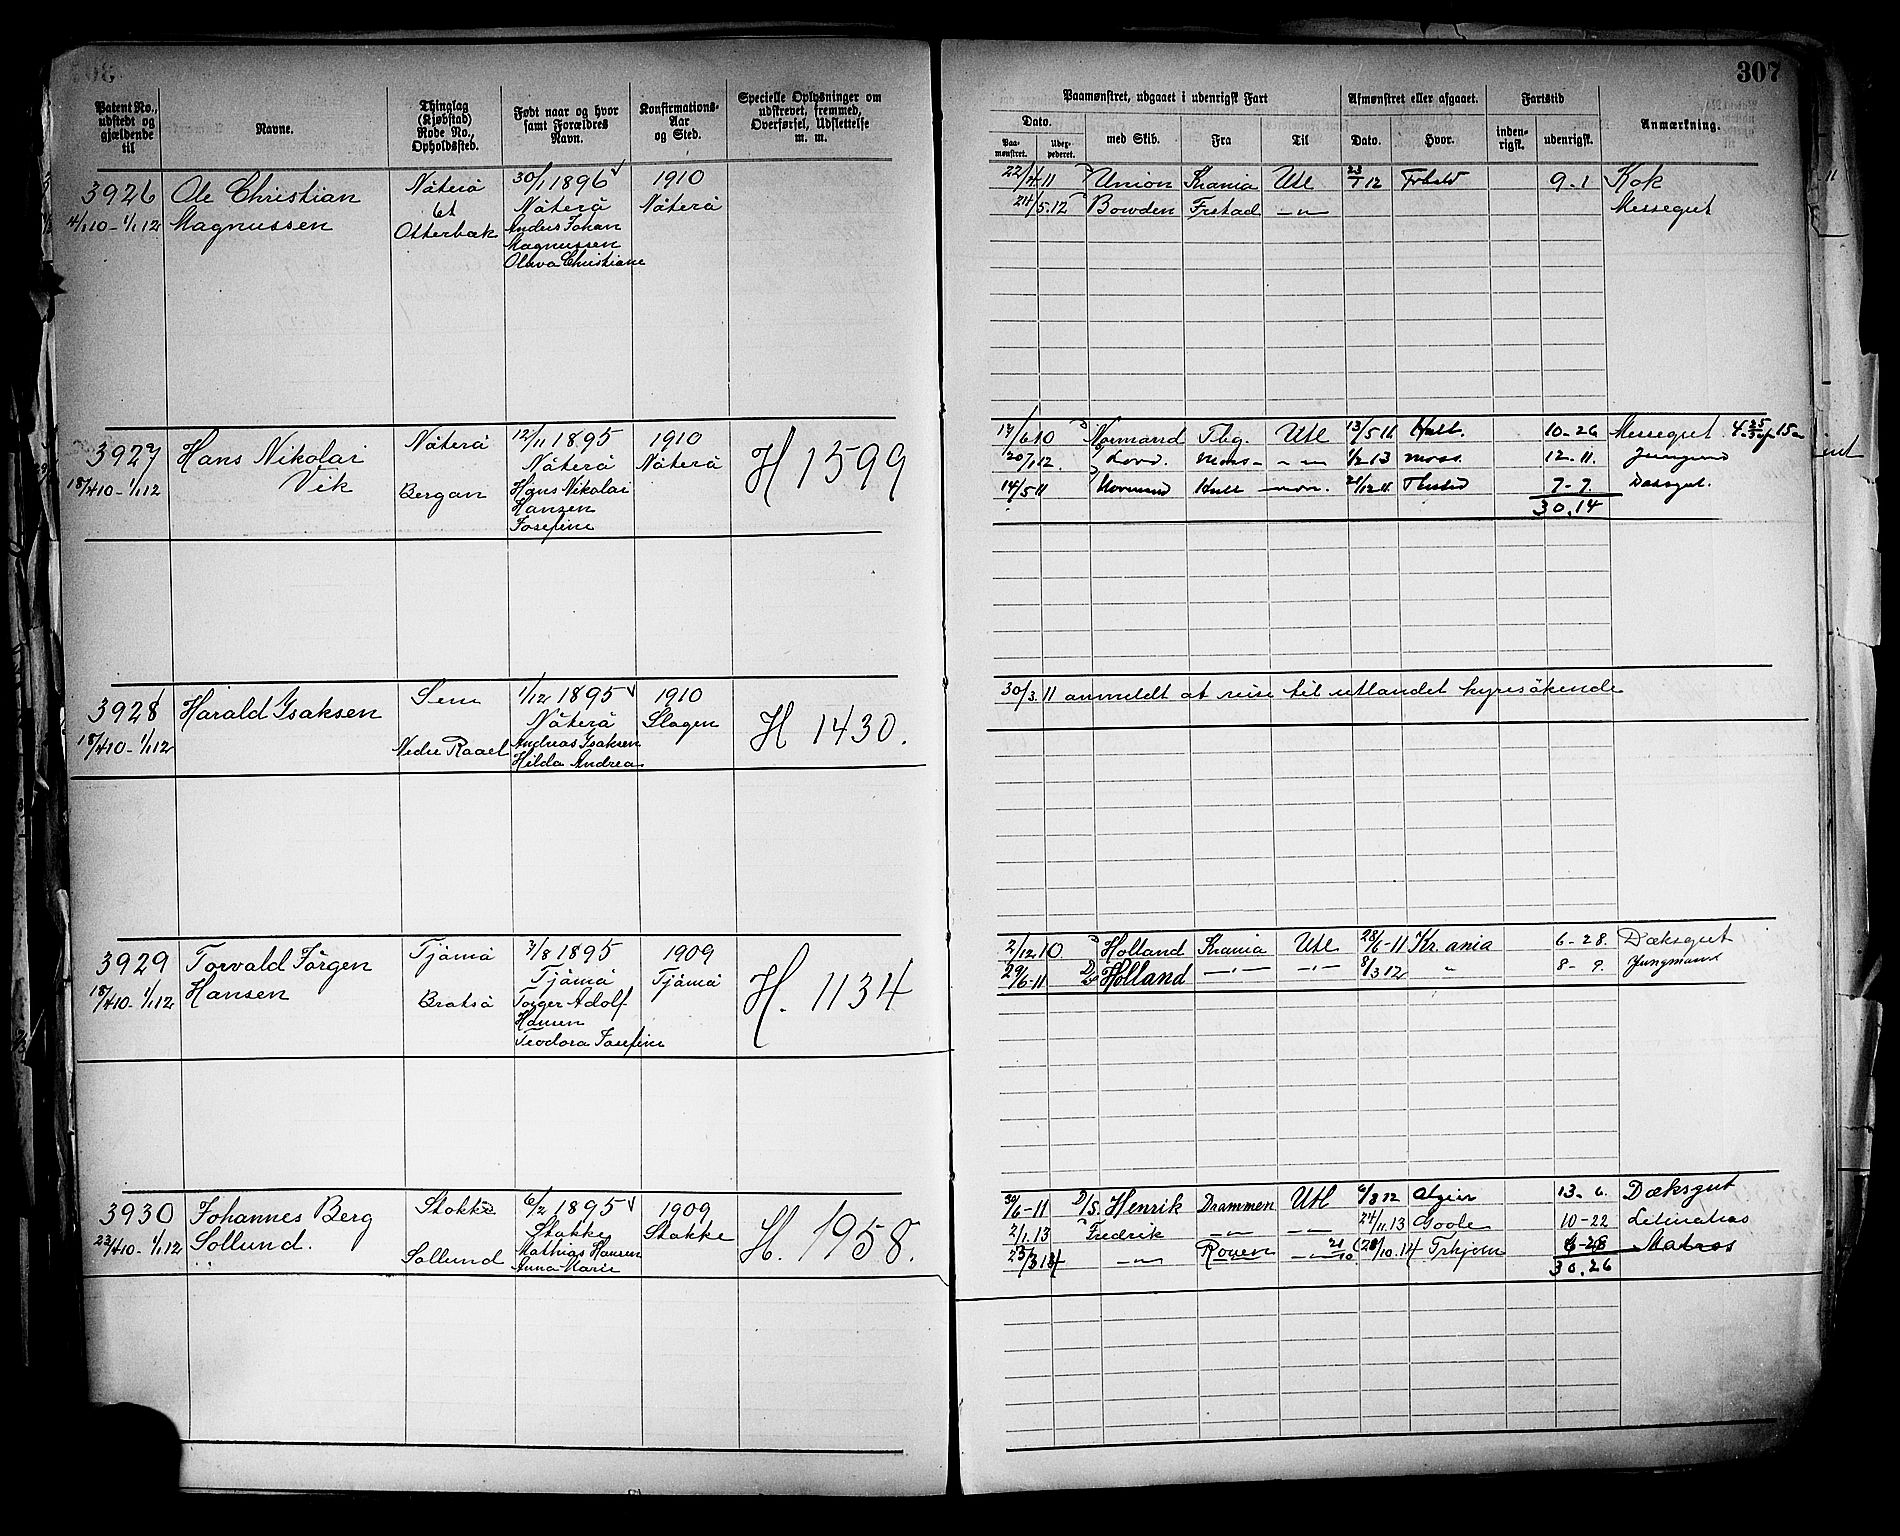 307
Patent No., udstedt og gjældende til
Navne.
Thinglag (Kjøbstad) Rode No., Opholdssted.
Født naar og hvor samt Forældres Navn.
Konfirmations-Aar og Sted.
Specielle Oplysninger om udskrevet, fremmed, Overførsel, Udslettelse m. m.
Paamønstret, udgaaet i udenrigsk Fart
Afmønstret eller afgaaet.
Fartstid
Anmærkning.
Dato.
Paamønstret.
med Skib.
Fra
Til
Dato.
Hvor.
indenrigsk.
udenrigsk.
3926 Ole Christian Nåterö 30/1 1896 1910
4/1 10 - 1/1 12 Magnussen Otterbæk Nåterö Nåterö
Anders Johan
Magnussen
Olava Christiane
22/4 11 Union Krania Utl 23/1 12 9-1 Kok
24/5.12 Bowden Frstad -"- Messegut
3927 Hans Nikolai Nåterö 12/11 1895 1910 H 1599
18/4 10 - 1/1 12 Vik Bergan Nåterö Nåterö
Hans Nikolai
Hansen
Josefine
17/6 10 Normand Tbg. Utl 13/5 11 Hull. 10-26 Messegut
20/1 12 Moss -"- 1/2 13 Moss 12-11. Jungmand
14/5 11 Normand Hull 21/12 11 7-7. Dæksgut.
30.14
3928 Harald Isaksen Sem 1/12 1895 1910 H 1430.
18/4 10 - 1/1 12 Nedre Raael Nåterö Slagen
Andreas Isaksen
Hilda Andrea
30/3 11 anmeldt at reise til utlandet hyresökende
3929 Torvald Jörgen Tjömö 7/8 1895 1909 H. 1134
18/4 10 - 1/1 12 Hansen Bratsö Tjömö Tjömö
Torger Adolf
Hansen
Teodora Josefine
2/12 10 Holland Krania Utl 28/6-11 Kr.ania 6-28. Dæksgut
29/6-11 D/S Holland -"- -"- 8/3 12 " 8-9. Jungmand
3930 Johannes Berg Stokke 6/2 1895 1909 H. 1958.
23/4 10 - 1/1 12 Sollund. Sollund Stokke Stokke
Mathias Hansen
Anna Marie
30/6-11 D/S. Henrik Drammen Utl 6/8 12 Algier 13-6. Dæksgut
2/1.13 Fredrik -"- -"- 24/11.13 Goole 10-22 Letmatros
23/3 14 -"- Rouen -"- 20/10.14 6-28 Matros
30.26